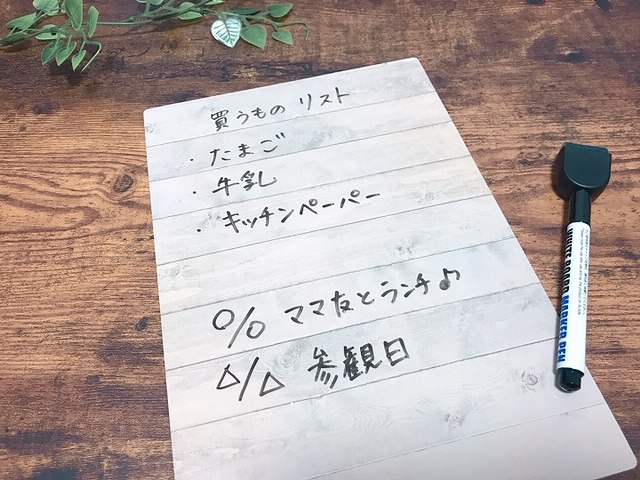 買うもの リスト
・たまご
・牛乳
・キッチンペーパー
○/○ ママ友とランチ♪
△/△ 参観日
WHITE BOARD MARKER PEN